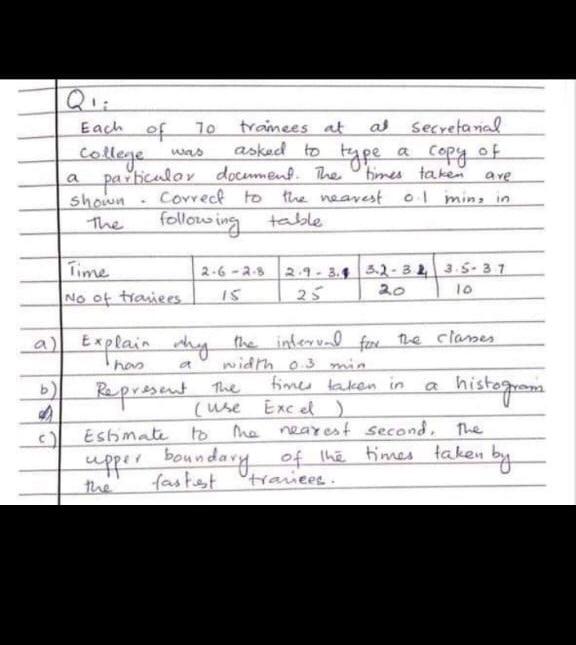 Q1:
Each of 70 trainees at at Secretarial
College was asked to type a copy of
a particular document. The times taken are
shown. Correct to the nearest 0.1 mins in
The following table
Time 2.6-2.8 2.9-3.1 3.2-3.4 3.5-3.7
No of trainees 15 25 20 10
a) Explain why the interval for the classes
has a width 0.3 min
b) Represent the times taken in a histogram
(use Excel)
c) Estimate to the nearest second, the
upper boundary of the times taken by
the fastest trainees.